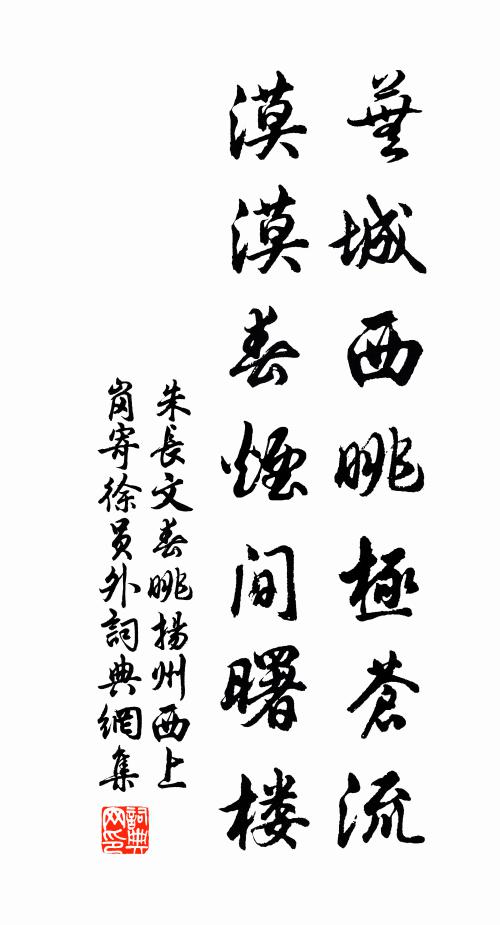 蕪城西眺極蒼流
漠漠春煙間曙樓
朱長文春眺揚州西上
崗寄徐員外詞典網集
詞典網印